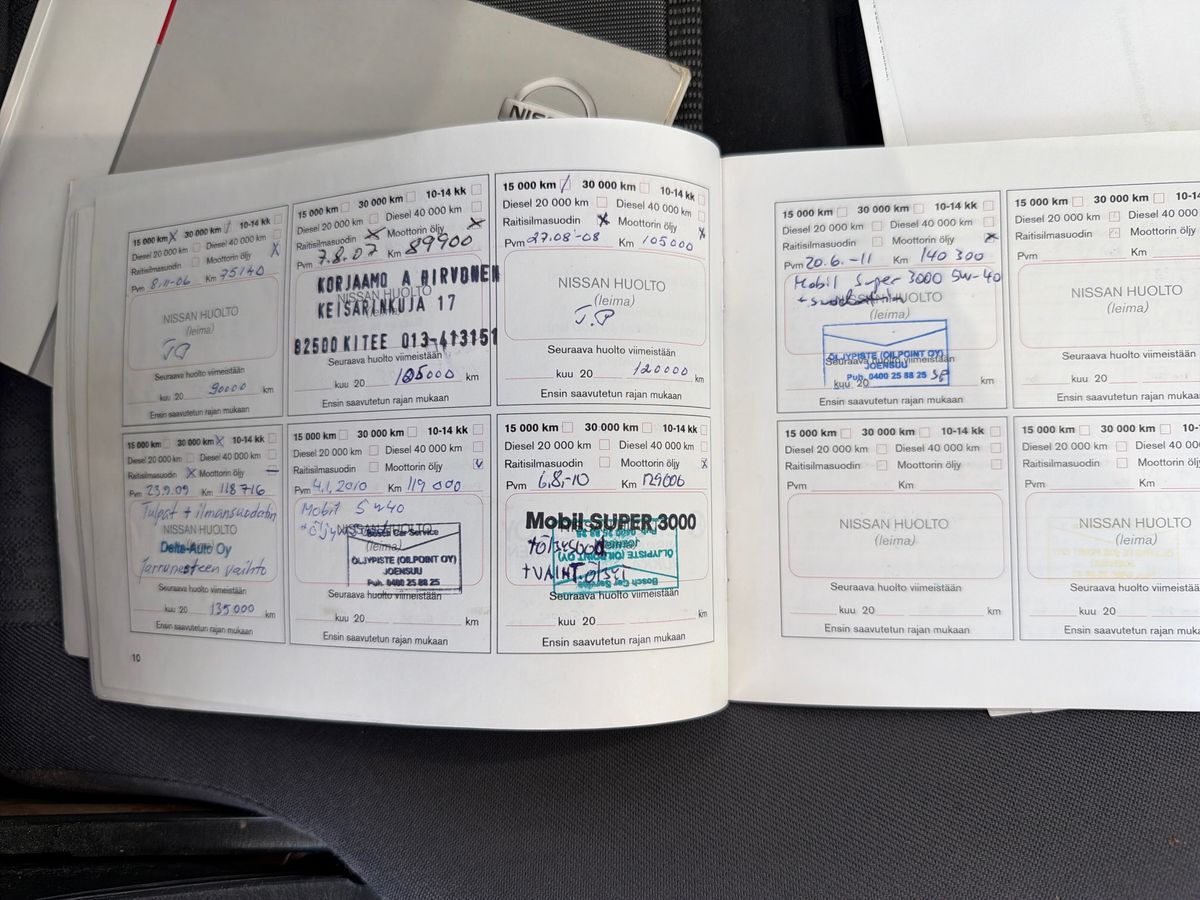 NISSAN
15 000 km x 30 000 km / 10-14 kk
Diesel 20 000 km Diesel 40 000 km
Raitisilmasuodin Moottorin öljy x
Pvm 8.11-06 Km 75140
NISSAN HUOLTO
(leima)
Seuraava huolto viimeistään
kuu 20 90000 km
Ensin saavutetun rajan mukaan
15 000 km 30 000 km 10-14 kk
Diesel 20 000 km Diesel 40 000 km
Raitisilmasuodin x Moottorin öljy x
Pvm 7.8.07 Km 89900
KORJAAMO A HIRVONEN
NISSAN HUOLTO
(leima)
KEISARINKUJA 17
82500 KITEE 013-413151
Seuraava huolto viimeistään
kuu 20 105000 km
Ensin saavutetun rajan mukaan
15 000 km / 30 000 km 10-14 kk
Diesel 20 000 km Diesel 40 000 km
Raitisilmasuodin x Moottorin öljy x
Pvm 27.08-08 Km 105000
NISSAN HUOLTO
(leima)
J.P
Seuraava huolto viimeistään
kuu 20 120000 km
Ensin saavutetun rajan mukaan
15 000 km 30 000 km x 10-14 kk
Diesel 20 000 km Diesel 40 000 km
Raitisilmasuodin x Moottorin öljy –
Pvm 23.9.09 Km 118716
Tulpat + ilmansuodatin
NISSAN HUOLTO
Delta-Auto Oy
Jarrunesteen vaihto
Seuraava huolto viimeistään
kuu 20 135000 km
Ensin saavutetun rajan mukaan
15 000 km 30 000 km 10-14 kk
Diesel 20 000 km Diesel 40 000 km
Raitisilmasuodin Moottorin öljy v
Pvm 4.1.2010 Km 119 000
Mobil 5w40
NISSAN HUOLTO
Bosch Car Service
(leima)
ÖLJYPISTE (OILPOINT OY)
JOENSUU
Puh. 0400 25 88 25
Seuraava huolto viimeistään
kuu 20 km
Ensin saavutetun rajan mukaan
15 000 km 30 000 km 10-14 kk
Diesel 20 000 km Diesel 40 000 km
Raitisilmasuodin Moottorin öljy x
Pvm 6.8.-10 Km 129006
Mobil SUPER 3000
Puh. 0400 25 88 25
JOENSUU
ÖLJYPISTE (OILPOINT OY)
+VAIHT.ÖLJY
Bosch Car Service
Seuraava huolto viimeistään
kuu 20 km
Ensin saavutetun rajan mukaan
10
15 000 km 30 000 km 10-14 kk
Diesel 20 000 km Diesel 40 000 km
Raitisilmasuodin Moottorin öljy x
Pvm 20.6.-11 Km 140 300
Mobil Super 3000 5W-40
NISSAN HUOLTO
(leima)
ÖLJYPISTE (OILPOINT OY)
Seuraava huolto viimeistään
JOENSUU
Puh. 0400 25 88 25
kuu 20 km
Ensin saavutetun rajan mukaan
15 000 km 30 000 km
Diesel 20 000 km Diesel 40 000
Raitisilmasuodin Moottorin öljy
Pvm Km
NISSAN HUOLTO
(leima)
Seuraava huolto viimeistään
kuu 20
Ensin saavutetun rajan mukaan
15 000 km 30 000 km 10-14 kk
Diesel 20 000 km Diesel 40 000 km
Raitisilmasuodin Moottorin öljy
Pvm Km
NISSAN HUOLTO
(leima)
Seuraava huolto viimeistään
kuu 20 km
Ensin saavutetun rajan mukaan
15 000 km 30 000 km 10-
Diesel 20 000 km Diesel 40 000
Raitisilmasuodin Moottorin öljy
Pvm Km
NISSAN HUOLTO
(leima)
Seuraava huolto viimeistään
kuu 20
Ensin saavutetun rajan mukaan